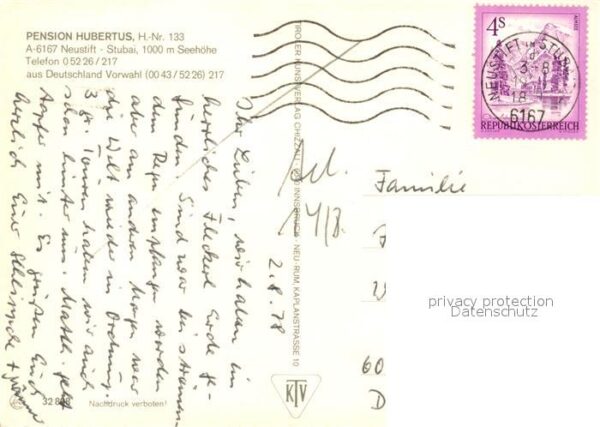 PENSION HUBERTUS, H.-Nr. 133
A-6167 Neustift - Stubai, 1000 m Seehöhe
Telefon 0 52 26 / 217
aus Deutschland Vorwahl (00 43 / 52 26) 217
Ihr Lieben, wir haben ein
herrliches Fleckerl Erde ge-
funden. Sind zwar bei strömen-
dem Regen empfangen worden
aber am andern Morgen war
die Welt wieder in Ordnung.
3 gr. Touren haben wir auch
schon hinter uns. Matth. geht
tapfer mit. Es grüßen Euch
herzlich Eure
2.8.78
32 8
Nachdruck verboten!
TIROLER KUNSTVERLAG CHIZZALI · INNSBRUCK · NEU-RUM, KAPLANSTRASSE 10
KTV
4S
REPUBLIK ÖSTERREICH
NEUSTIFT IM STUB
6167
14/8.
Familie
60
D
privacy protection
Datenschutz